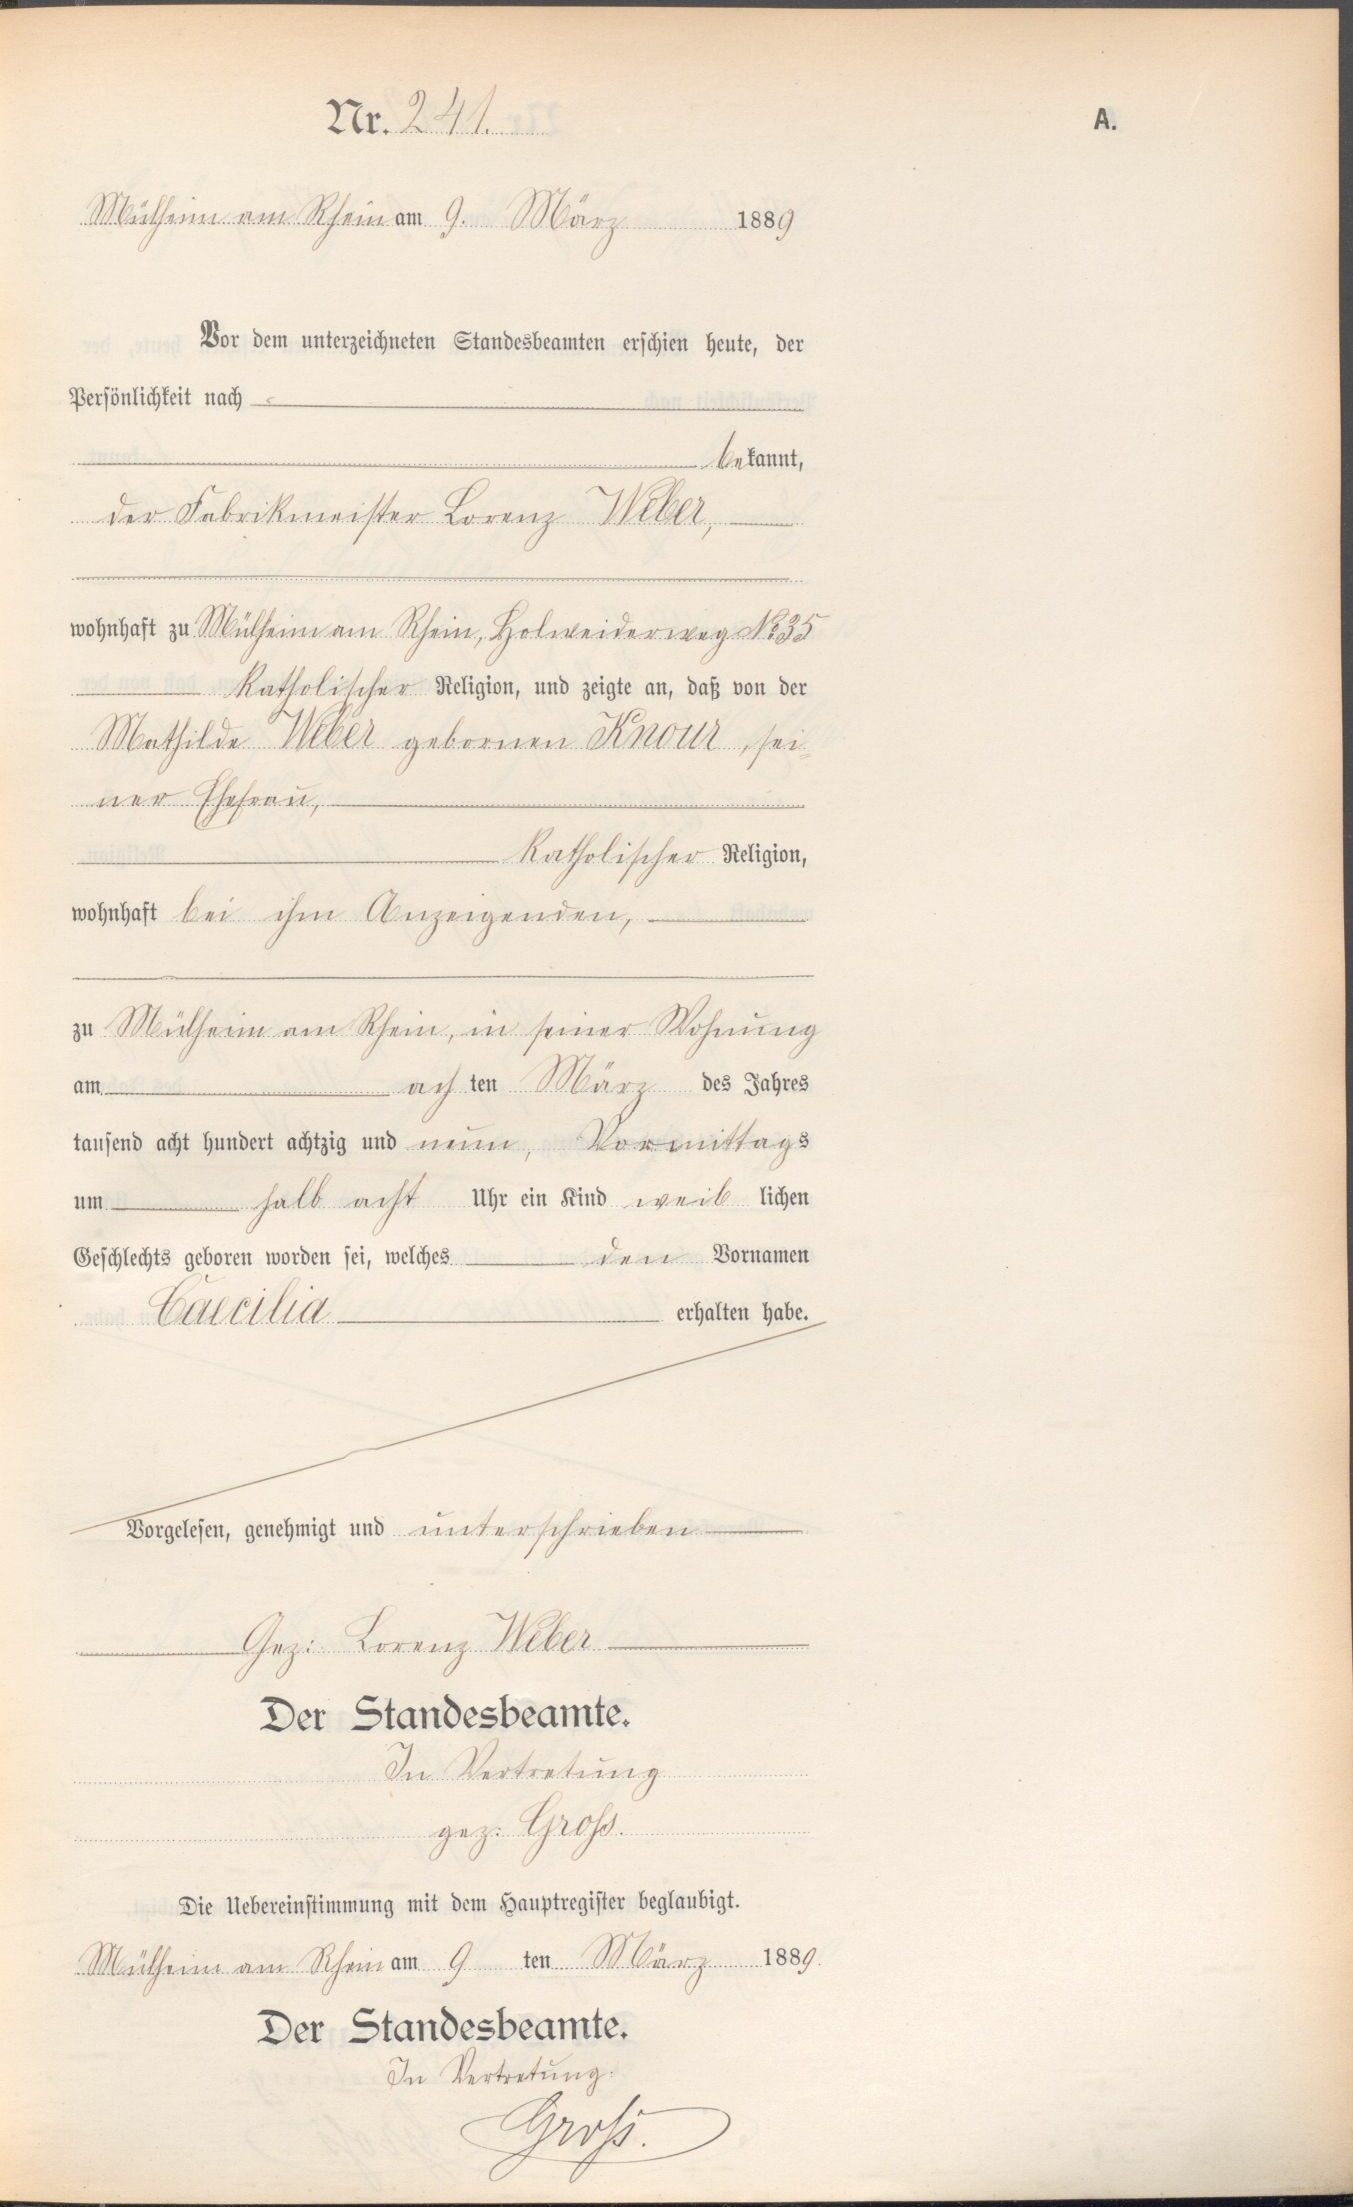 Nr. 241.
A.
Mülheim am Rhein am 9. März 1889
Vor dem unterzeichneten Standesbeamten erschien heute, der
Persönlichkeit nach
bekannt,
der Fabrikmeister Lorenz Weber,
wohnhaft zu Mülheim am Rhein, Holweiderweg No 35
katholischer Religion, und zeigte an, daß von der
Mathilde Weber gebornen Knour, sei=
ner Ehefrau,
katholischer Religion,
wohnhaft bei ihm Anzeigenden,
zu Mülheim am Rhein, in seiner Wohnung
am achten März des Jahres
tausend acht hundert achtzig und neun, Vormittags
um halb acht Uhr ein Kind weiblichen
Geschlechts geboren worden sei, welches den Vornamen
Caecilia erhalten habe.
Vorgelesen, genehmigt und unterschrieben
Gez: Lorenz Weber
Der Standesbeamte.
In Vertretung
gez: Groß.
Die Uebereinstimmung mit dem Hauptregister beglaubigt.
Mülheim am Rhein am 9 ten März 1889.
Der Standesbeamte.
In Vertretung:
Groß.